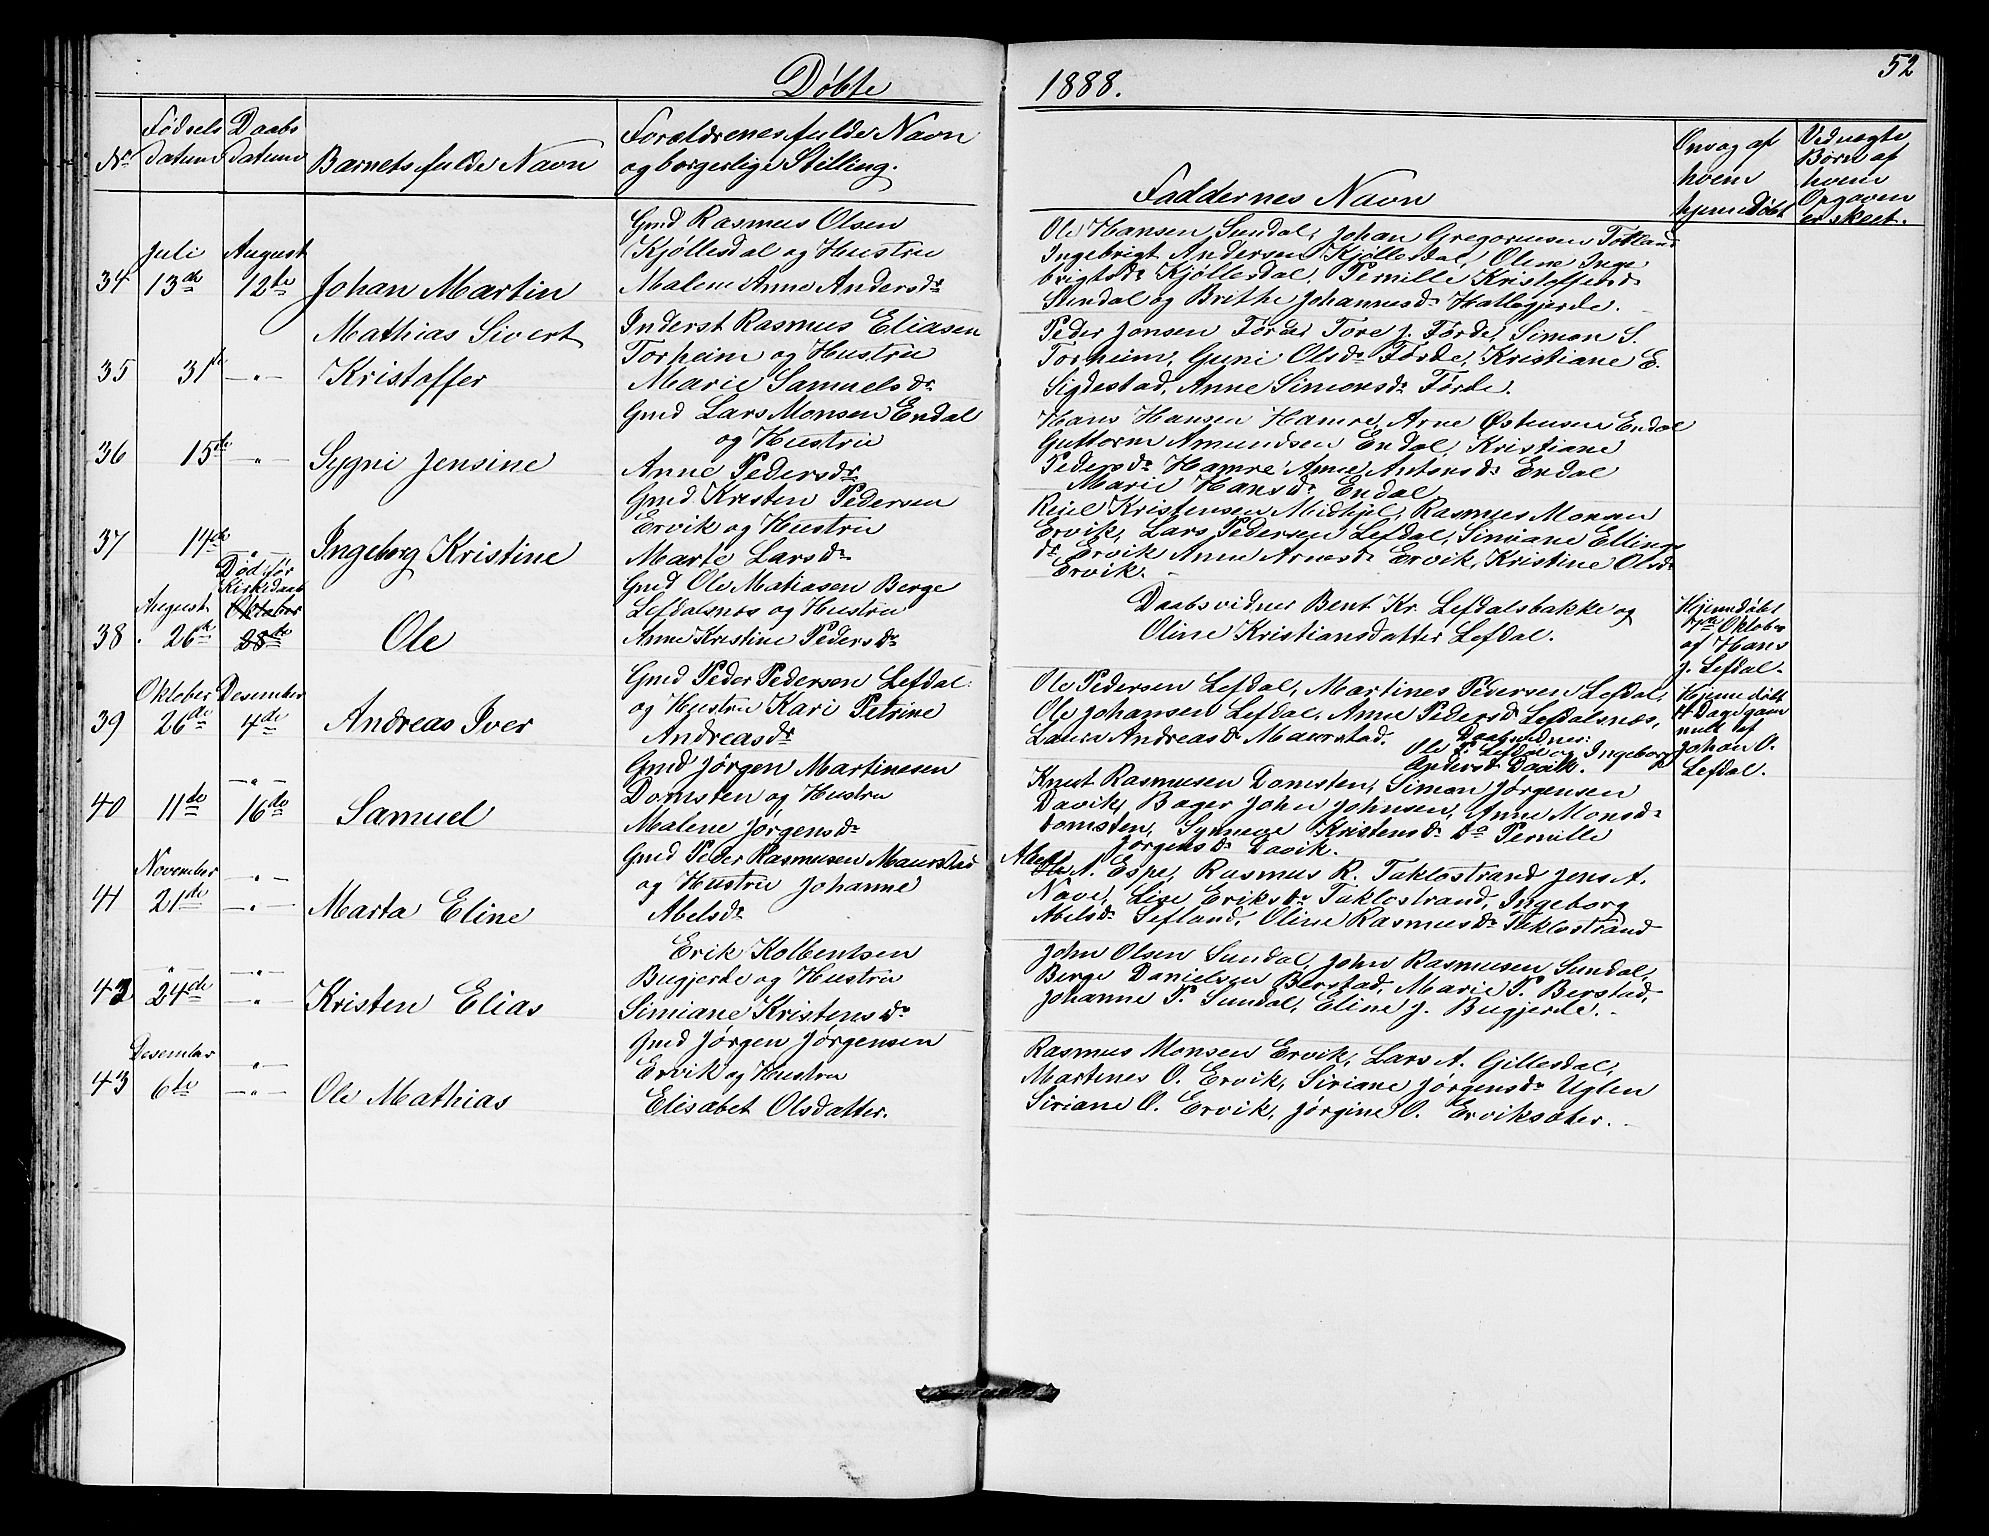 Døbte
1888.
52
No
Fødsels datum
Daabs datum
Barnets fulde Navn
Forældrenes fulde Navn
og borgerlige Stilling.
Faddernes Navn
Om og af
hvem
hjemedøbt
Ved uægte
Børn af
hvem
Opgaven
er skeet.
34
Juli
13de
August
12te
Johan Martin
Gmd Rasmus Olsen
Kjøllesdal og Hustru
Malene Anne Andersdr
Ole Hansen Sundal, Johan Gregoriusen Totland
Ingebrigt Andersen Kjøllesdal, Oline Inge
brigtsdr Kjøllesdal, Pernille Kristofersdr
Sundal og Brithe Johannesdr Hallegjerde.
35
31te
-„-
Mathias Sivert
Kristoffer
Inderst Rasmus Eliasen
Torheim og Hustru
Marie Samuelsdr
Peder Jonsen Førde Tore J. Førde, Simon S.
Torheim, Guni Olsdr Førde, Kristiane E.
Sigdestad, Anne Simonsdr Førde.
36
15de
-„-
Sygni Jensine
Gmd Lars Monsen Endal
og Hustru
Anne Pedersdr
Hans Hansen Hamre, Arne Østensen Endal
Guttorm Amundsen Endal, Kristiane
Pedersdr Hamre Anne Antonsdr Endal
Marie Hansdr Endal
37
14de
-„-
Ingeborg Kristine
Gmd Kristen Pedersen
Ervik og Hustru
Marte Larsdr
Kristensen Midhjel, Rasmus Monsen
Ervik, Lars Pedersen Lefdal, Simiane Ellings
dr Ervik Anne Arnesdr Ervik, Kristine Olsdr
Ervik.
38
August
26de
Død før
Kirkedaab
Oktober
28de
Ole
Gmd Ole Matiasen Berge
Lefdalsnes og Hustru
Anne Kristine Pedersdr
Daabsvidner Bent Kr. Lefdalsbakke og
Oline Kristiansdatter Lefdal.
Hjemdøbt
Oktober
af Hans
J. Lefdal
39
Oktober
26de
Desember
4de
Andreas Iver
Gmd Peder Pedersen Lefdal
og Hustru Kari Petrine
Andreasdr
Ole Pedersen Lefdal, Martines Pedersen Lefdal,
Ole Johansen Lefdal, Anne Pedersdr Lefdalsnes,
Laura Andreasdr Maurstad. Daabsvidner:
Ole P. Lefdal og Ingeborg
Andersdr Davik.
Hjemedøbt
4 Dage gam
melt af
Johan O.
Lefdal.
40
-„-
11de
16de
Samuel
Gmd Jørgen Martinesen
Domsten og Hustru
Malene Jørgensdr
Knut Rasmusen Domsten, Simon Jørgensen
Davik, Bager John Johnsen, Anne Monsdr
Domsten, Synneve Kristensdr Do Pernille
Jørgensdr Davik.
41
November
21de
-„-
-„-
Marta Eline
Gmd Peder Rasmusen Maurstad
og Hustru Johanne
Abelsdr
Abel
Ole A. Espe, Rasmus R. Taklostrand Jens A.
Nave, Lise Eriksdr Taklostrand, Ingeborg
Abelsdr Sefland, Oline Rasmusdr Taklostrand
42
-„-
24de
-„-
-„-
Kristen Elias
Erik Kolbentsen
Bugjerde og Hustru
Simiane Kristensdr
John Olsen Sundal, John Rasmusen Sundal,
Berge Danielsen Berstad, Marie P. Berstad,
Johanne P. Sundal, Eline J. Bugjerde.
43
Desember
6te
-„-
-„-
Ole Mathias
Gmd Jørgen Jørgensen
Ervik og Hustru
Elisabet Olsdatter.
Rasmus Monsen Ervik, Lars A. Gillesdal,
Martines O. Ervik, Siriane Jørgensdr Uglen
Siriane O. Ervik, Jørgine O. Erviksæter.